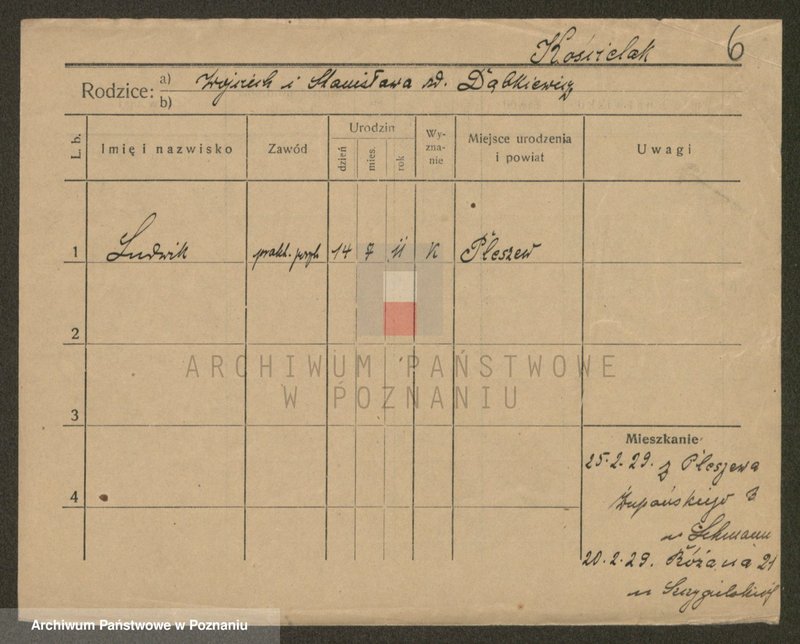 Kościelak 6
Rodzice: a) Wojciech i Stanisława zd. Dąbkiewicz
b)
L. b. Imię i nazwisko Zawód Urodzin dzień mies. rok Wy- zna- nie Miejsce urodzenia i powiat Uwagi
1 Ludwik prakt. 14 7 11 K Pleszew
2
ARCHIWUM PAŃSTWOWE
W POZNANIU
3
Mieszkanie
25.2.29. z Pleszewa
4
Żupańskiego 3
u Lehmann
20.2.29. Różana 21
u
Archiwum Państwowe w Poznaniu